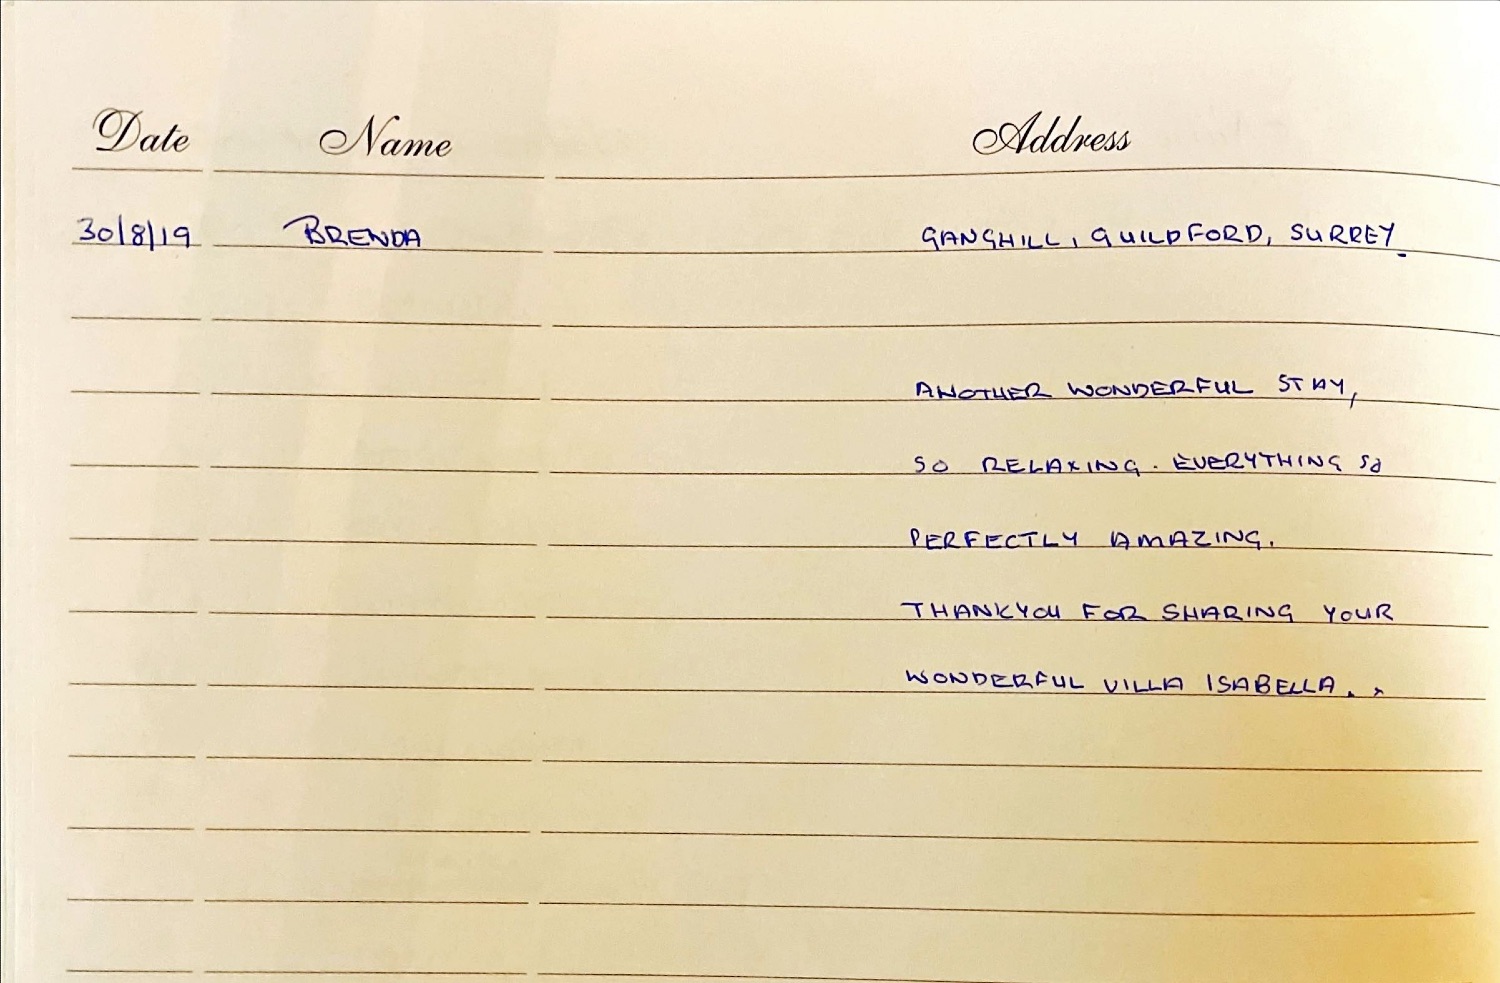 Date Name Address
30/8/19 BRENDA GANGHILL, GUILDFORD, SURREY.
ANOTHER WONDERFUL STAY,
SO RELAXING. EVERYTHING SO
PERFECTLY AMAZING.
THANKYOU FOR SHARING YOUR
WONDERFUL VILLA ISABELLA. x